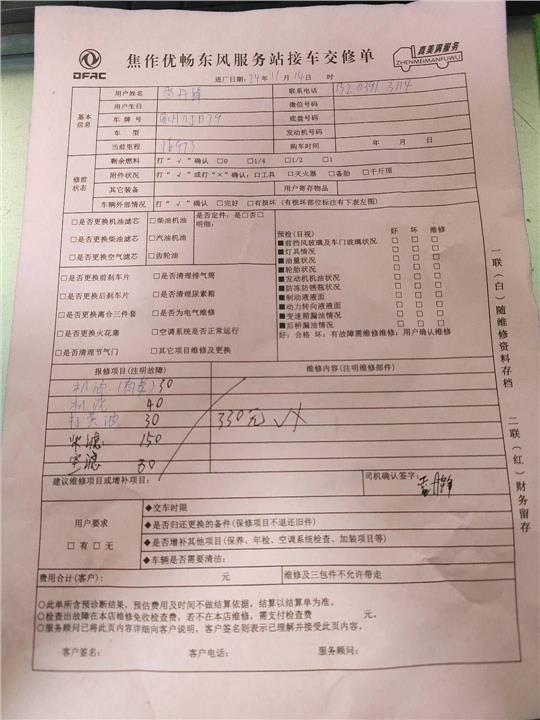 DFAC
焦作优畅东风服务站接车交修单
真美满服务
ZHENMEIMANFUWU
进厂日期：24年11月14日 时
基本信息
用户姓名 联系电话
用户生日 微信号码
车牌号 底盘号码
车型 发动机号码
当前里程 16973 购车时间 年 月 日
修前状态
剩余燃料 打“√”确认 □0 □1/4 □1/2 □1
附件状况 打“√”或打“×”确认：□工具 □灭火器 □备胎 □千斤顶
其它装备 用户寄存物品
车辆外部情况 打“√”确认 □完好 □有损坏（有损坏部位标注有下表左图）
□是否更换机油滤芯 □柴油机油 是否定件：是□否□
明细：
□是否更换柴油滤芯 □汽油机油
□是否更换空气滤芯 □齿轮油
□是否更换前刹车片 □是否清理排气筒
□是否更换后刹车片 □是否清理尿素箱
□是否更换离合三件套 □是否为电气维修
□是否更换火花塞 □空调系统是否正常运行
□是否清理节气门 □其它项目维修及更换
预检(目视) 好 坏 维修
■前挡风玻璃及车门玻璃状况 □ □ □
■灯具情况 □ □ □
■油量状况 □ □ □
■轮胎状况 □ □ □
■发动机机油状况 □ □ □
■防冻防锈瓶状况 □ □ □
■制动液液面 □ □ □
■动力转向液液面 □ □ □
■变速箱漏油情况 □ □ □
■后桥漏油情况 □ □ □
好：合格 坏：有故障需维修维修：用户确认维修
报修项目(注明故障) 维修内容(注明维修部件)
机油 30
机滤 40
打黄油 30
柴滤 150
空滤 80
330元
建议维修项目或增补项目：
司机确认签字：
用户要求
□有 □无
◆交车时限
◆是否归还更换的备件(保修项目不退还旧件)
◆是否增补其他项目(保养、年检、空调系统检查、加装项目等)
◆车辆是否需要清洁：
费用合计(客户)： 元 维修及三包件不允许带走
○此单所含预诊断结果，预估费用及时间不做结算依据，结算以结算单为准。
○检查出故障在本店维修免收检查费，若不在本店维修，需支付检查费 元。
○服务顾问已将此页内容详细向客户说明，客户签名则表示已理解并接受此页内容。
客户签名： 客户电话： 服务顾问：
一联（白）随维修资料存档
二联（红）财务留存